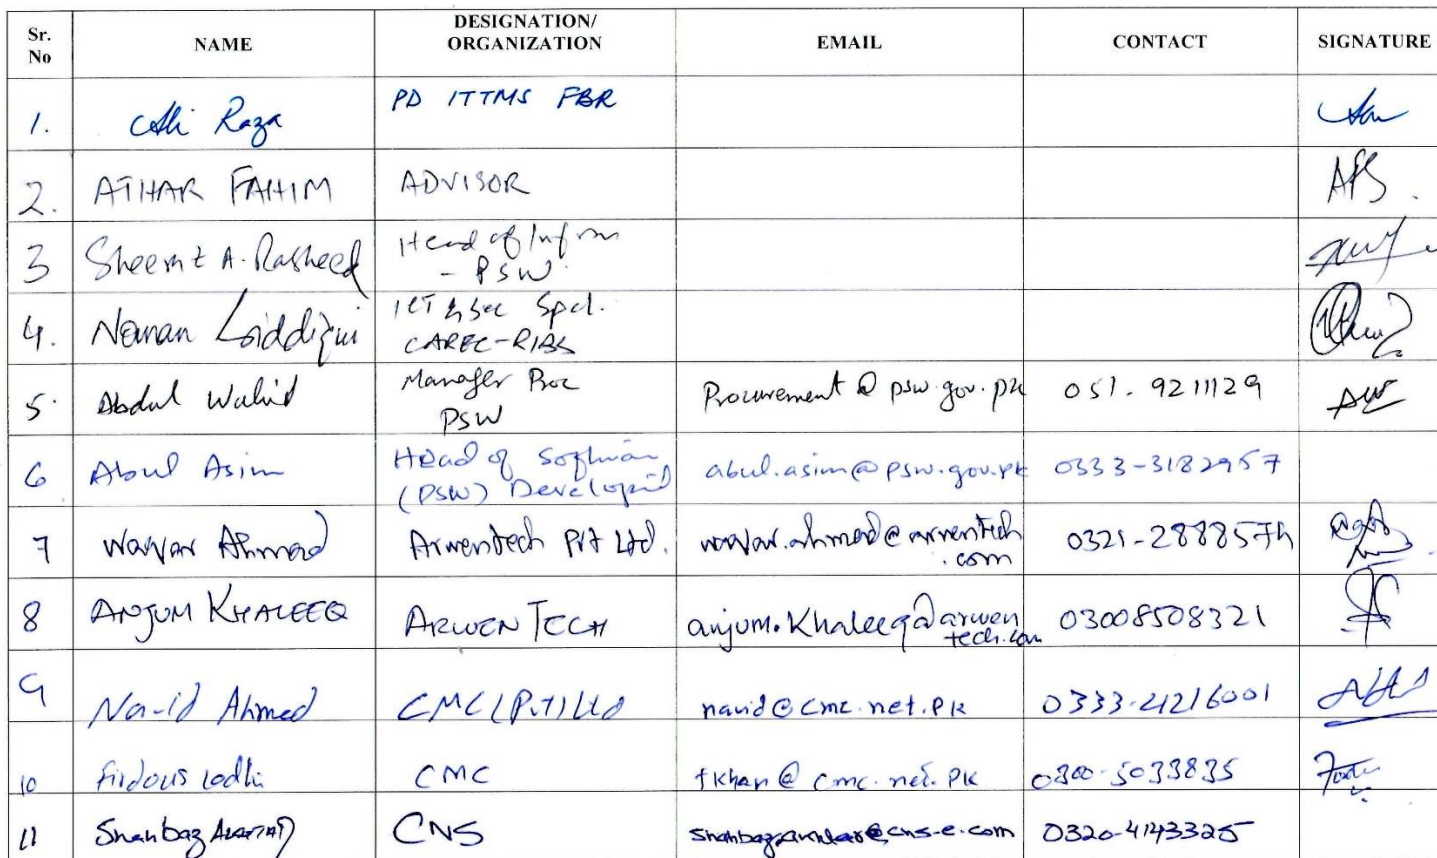 Sr. No NAME DESIGNATION/ ORGANIZATION EMAIL CONTACT SIGNATURE
1. Ali Raza PD ITTMS FBR
2. ATHAR FAHIM ADVISOR
3 A. Rasheed Head of
- PSW
4. Noman Siddiqui ICT & Sec Spcl.
CAREC-RIBS
5. Abdul Wahid Manager Proc Procurement@psw.gov.pk 051-9211129
PSW
6 Abul Asim Head of abul.asim@psw.gov.pk 0333-3182957
(PSW)
7 Waqar Ahmed Arwentech Pvt Ltd. waqar.ahmed@arwentech 0321-2888574
.com
8 ANJUM KHALEEQ ARWEN TECH anjum.Khaleeq@arwen 03008508321
tech.com
9 Navid Ahmed CMC (Pvt) Ltd navid@cmc.net.PK 0333-4216001
10 Firdous lodhi CMC fkhan@cmc.net.PK 0300-5033835
11 Shahbaz CNS 0320-4143325